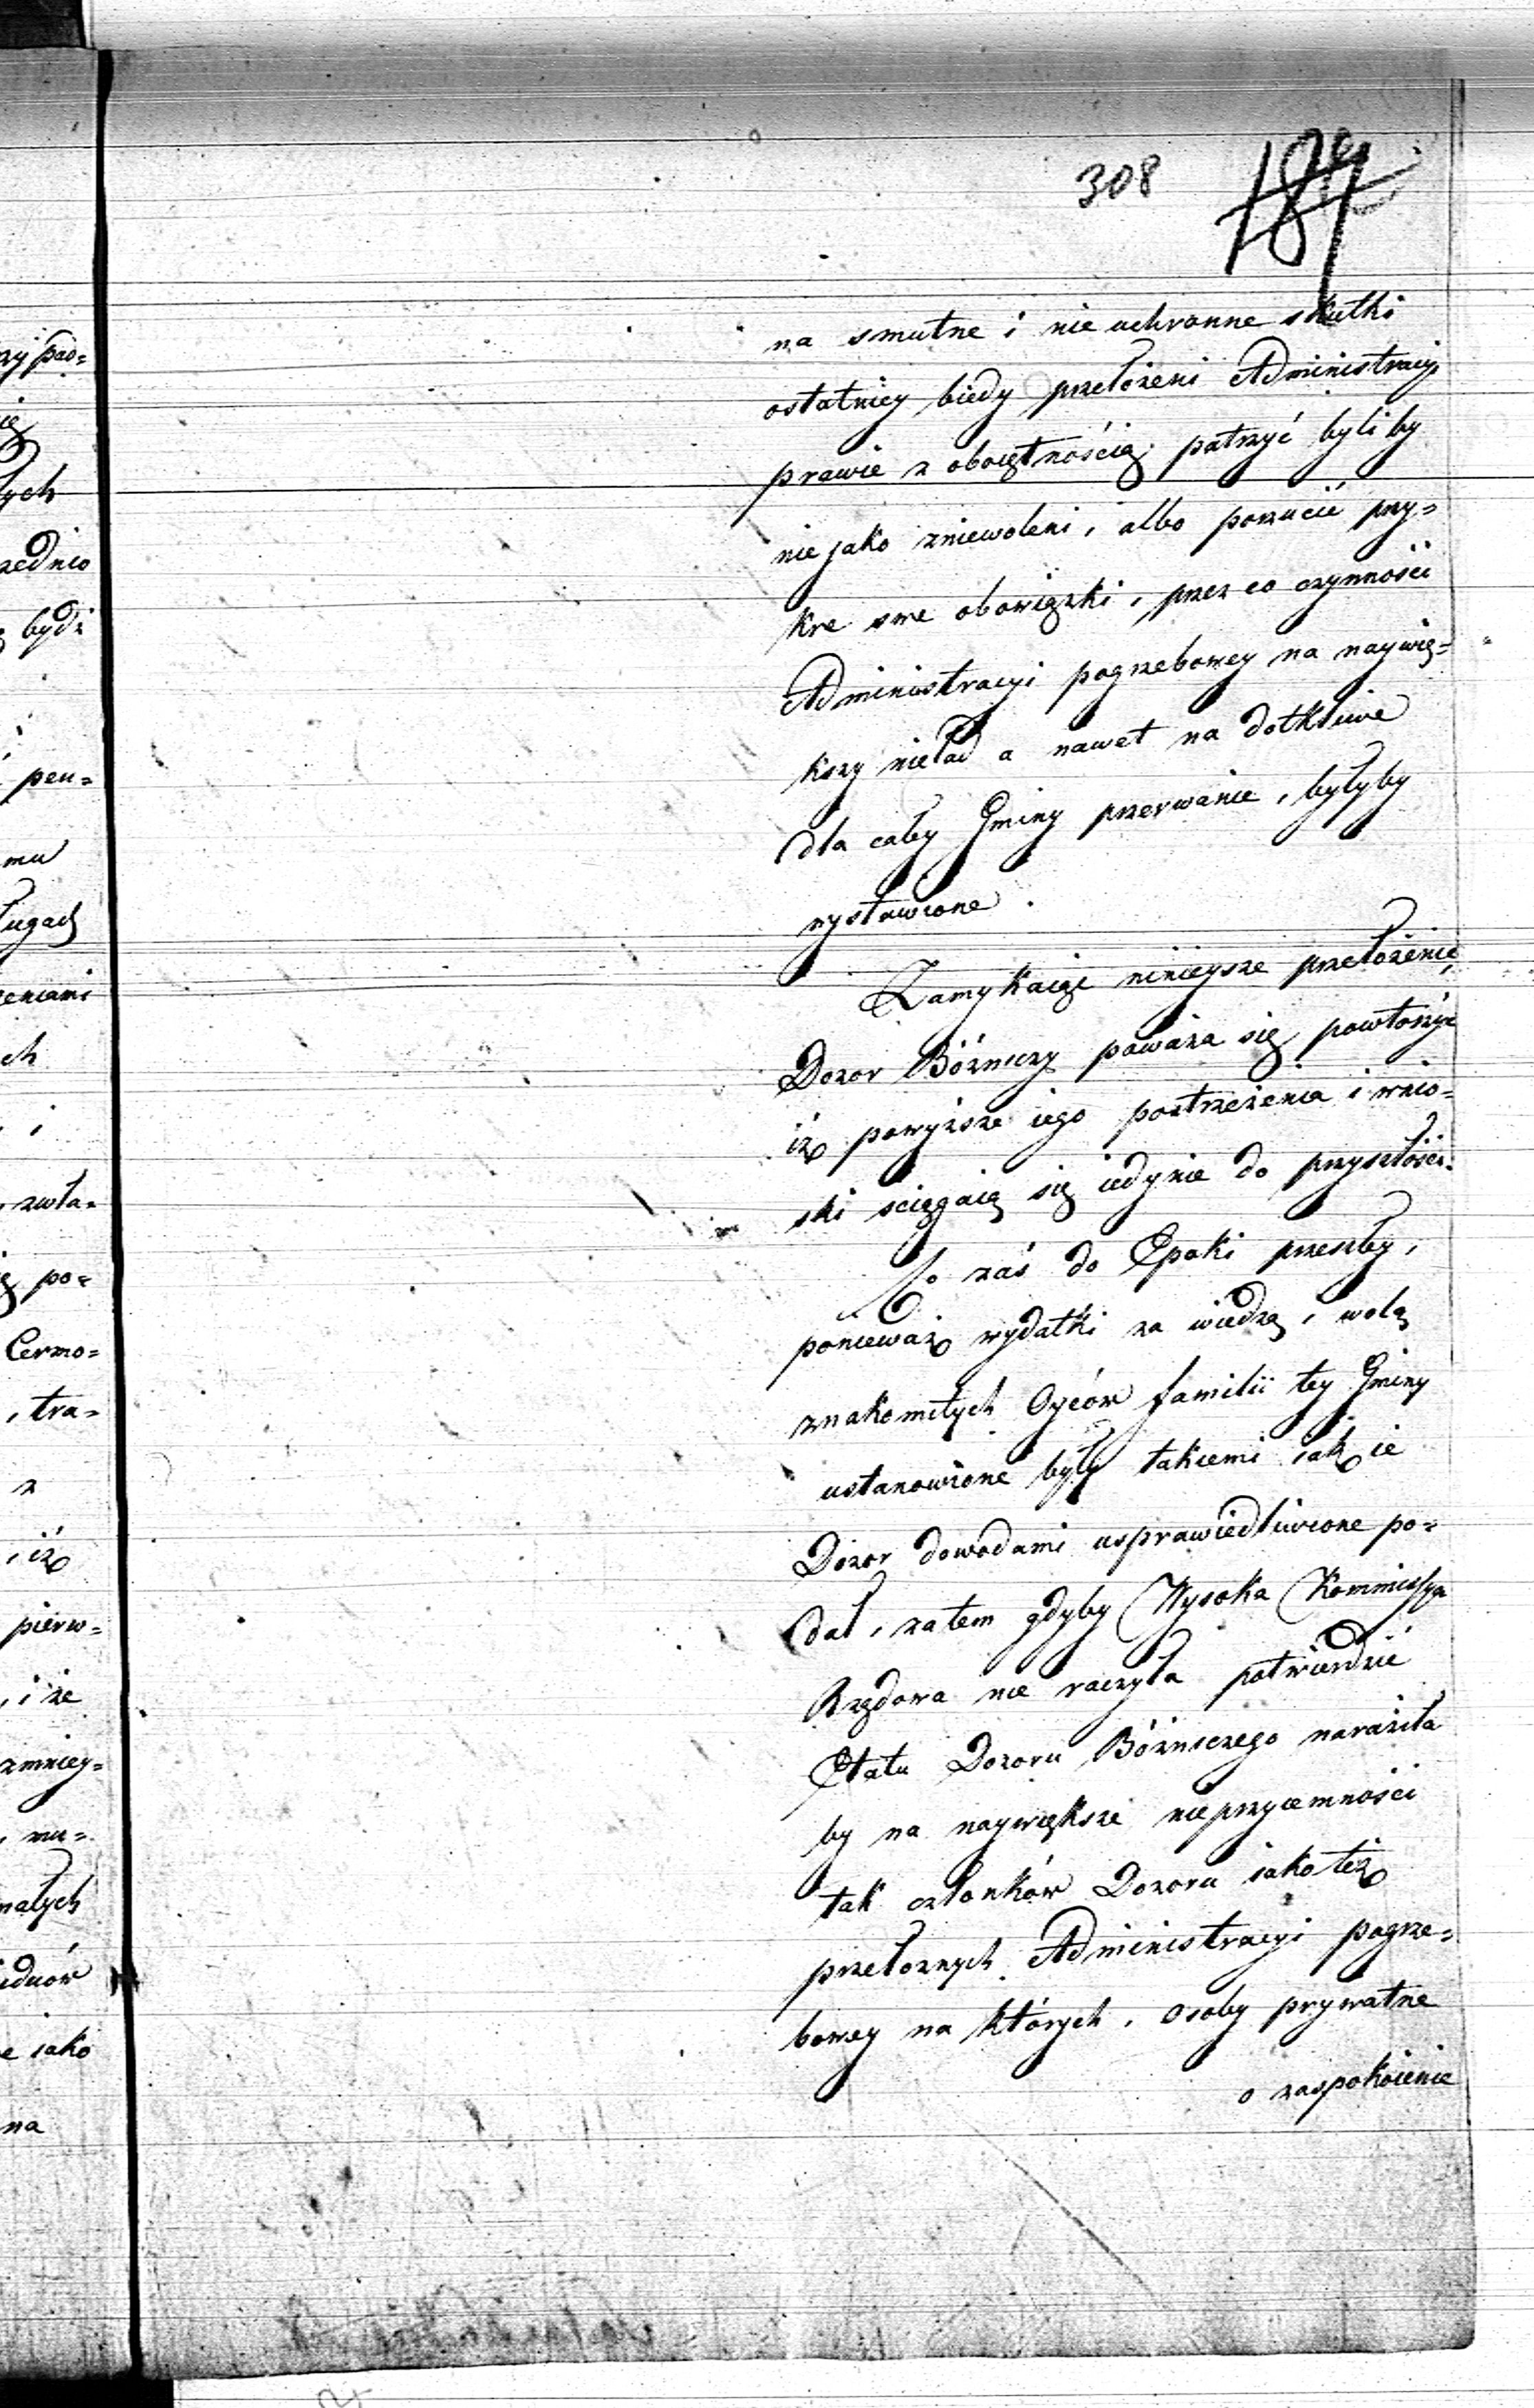 308 189
na smutne i nie uchronne skutki
ostatniey biedy przełożeni Administracyi
prawie z oboiętnością patrzyć byli by
nie jako zniewoleni, albo porzucić przy=
kre swe obowiązki, przez co czynności
Administracyi pogrzebowey na naywię=
kszy nieład a nawet na dotkliwe
dla całey Gminy przerwanie, byłyby
wystawione.
Zamykaiąc ninieysze przełożenie,
Dozor Bóżniczy poważa się powtorzyć
iż powyższe iego postrzeżenia i wnio=
ski sciągaią się iedynie do przyszłości.
Co zaś do Epoki przeszłey,
ponieważ wydatki za wiedzą i wolą
znakomitych Oyców familii tey Gminy
ustanowione były takiemi iak ie
Dozor dowodami usprawiedliwione po=
dał, zatem gdyby Wysoka Kommissya
Rządowa nie raczyła potwierdzić
Etatu Dozoru Bóżniczego naraziła
by na naywiększe nieprzyiemności
tak członków Dozoru iako też
przełoznych Administracyi pogrze=
bowey na których, osoby prywatne
o zaspokoienie